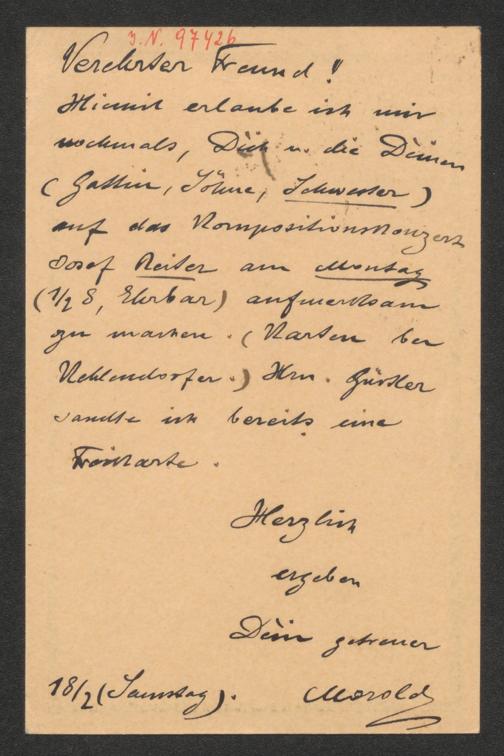 J.N. 97426
Verehrter Freund!
Hiemit erlaube ich mir
nochmals, Dich u. die Deinen
(Gattin, Söhne, Schwester)
auf das Kompositionskonzert
Josef Reiter am Montag
(1/2 8, Ehrbar) aufmerksam
zu machen. (Karten bei
Kehlendorfer.) Hrn. Gürtler
sandte ich bereits eine
Freikarte.
Herzlich
ergeben
Dein getreuer
18/2 (Samstag). Morold